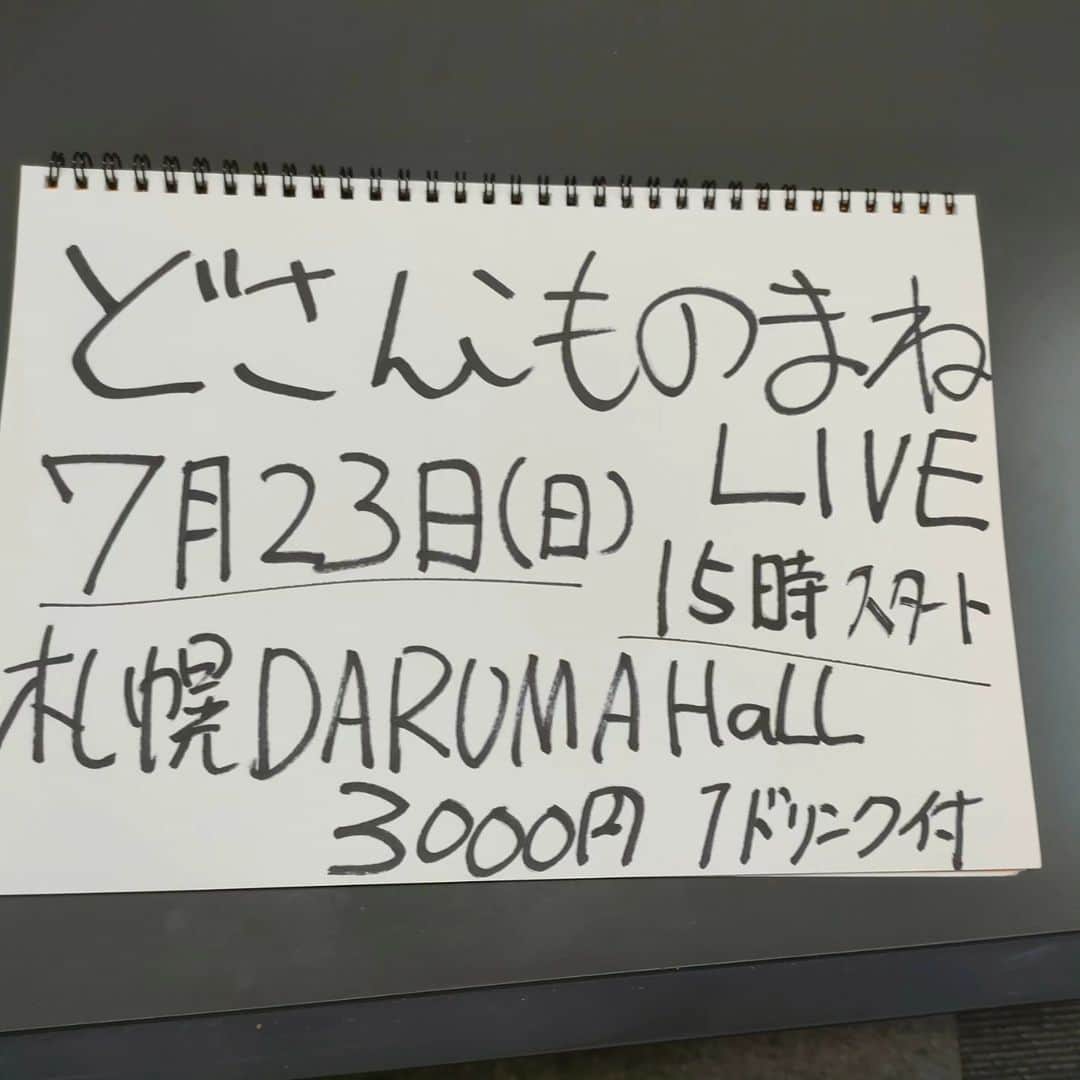 どさんこものまね
LIVE
7月23日(日)
15時スタート
札幌DARUMAHaLL
3000円 1ドリンク付